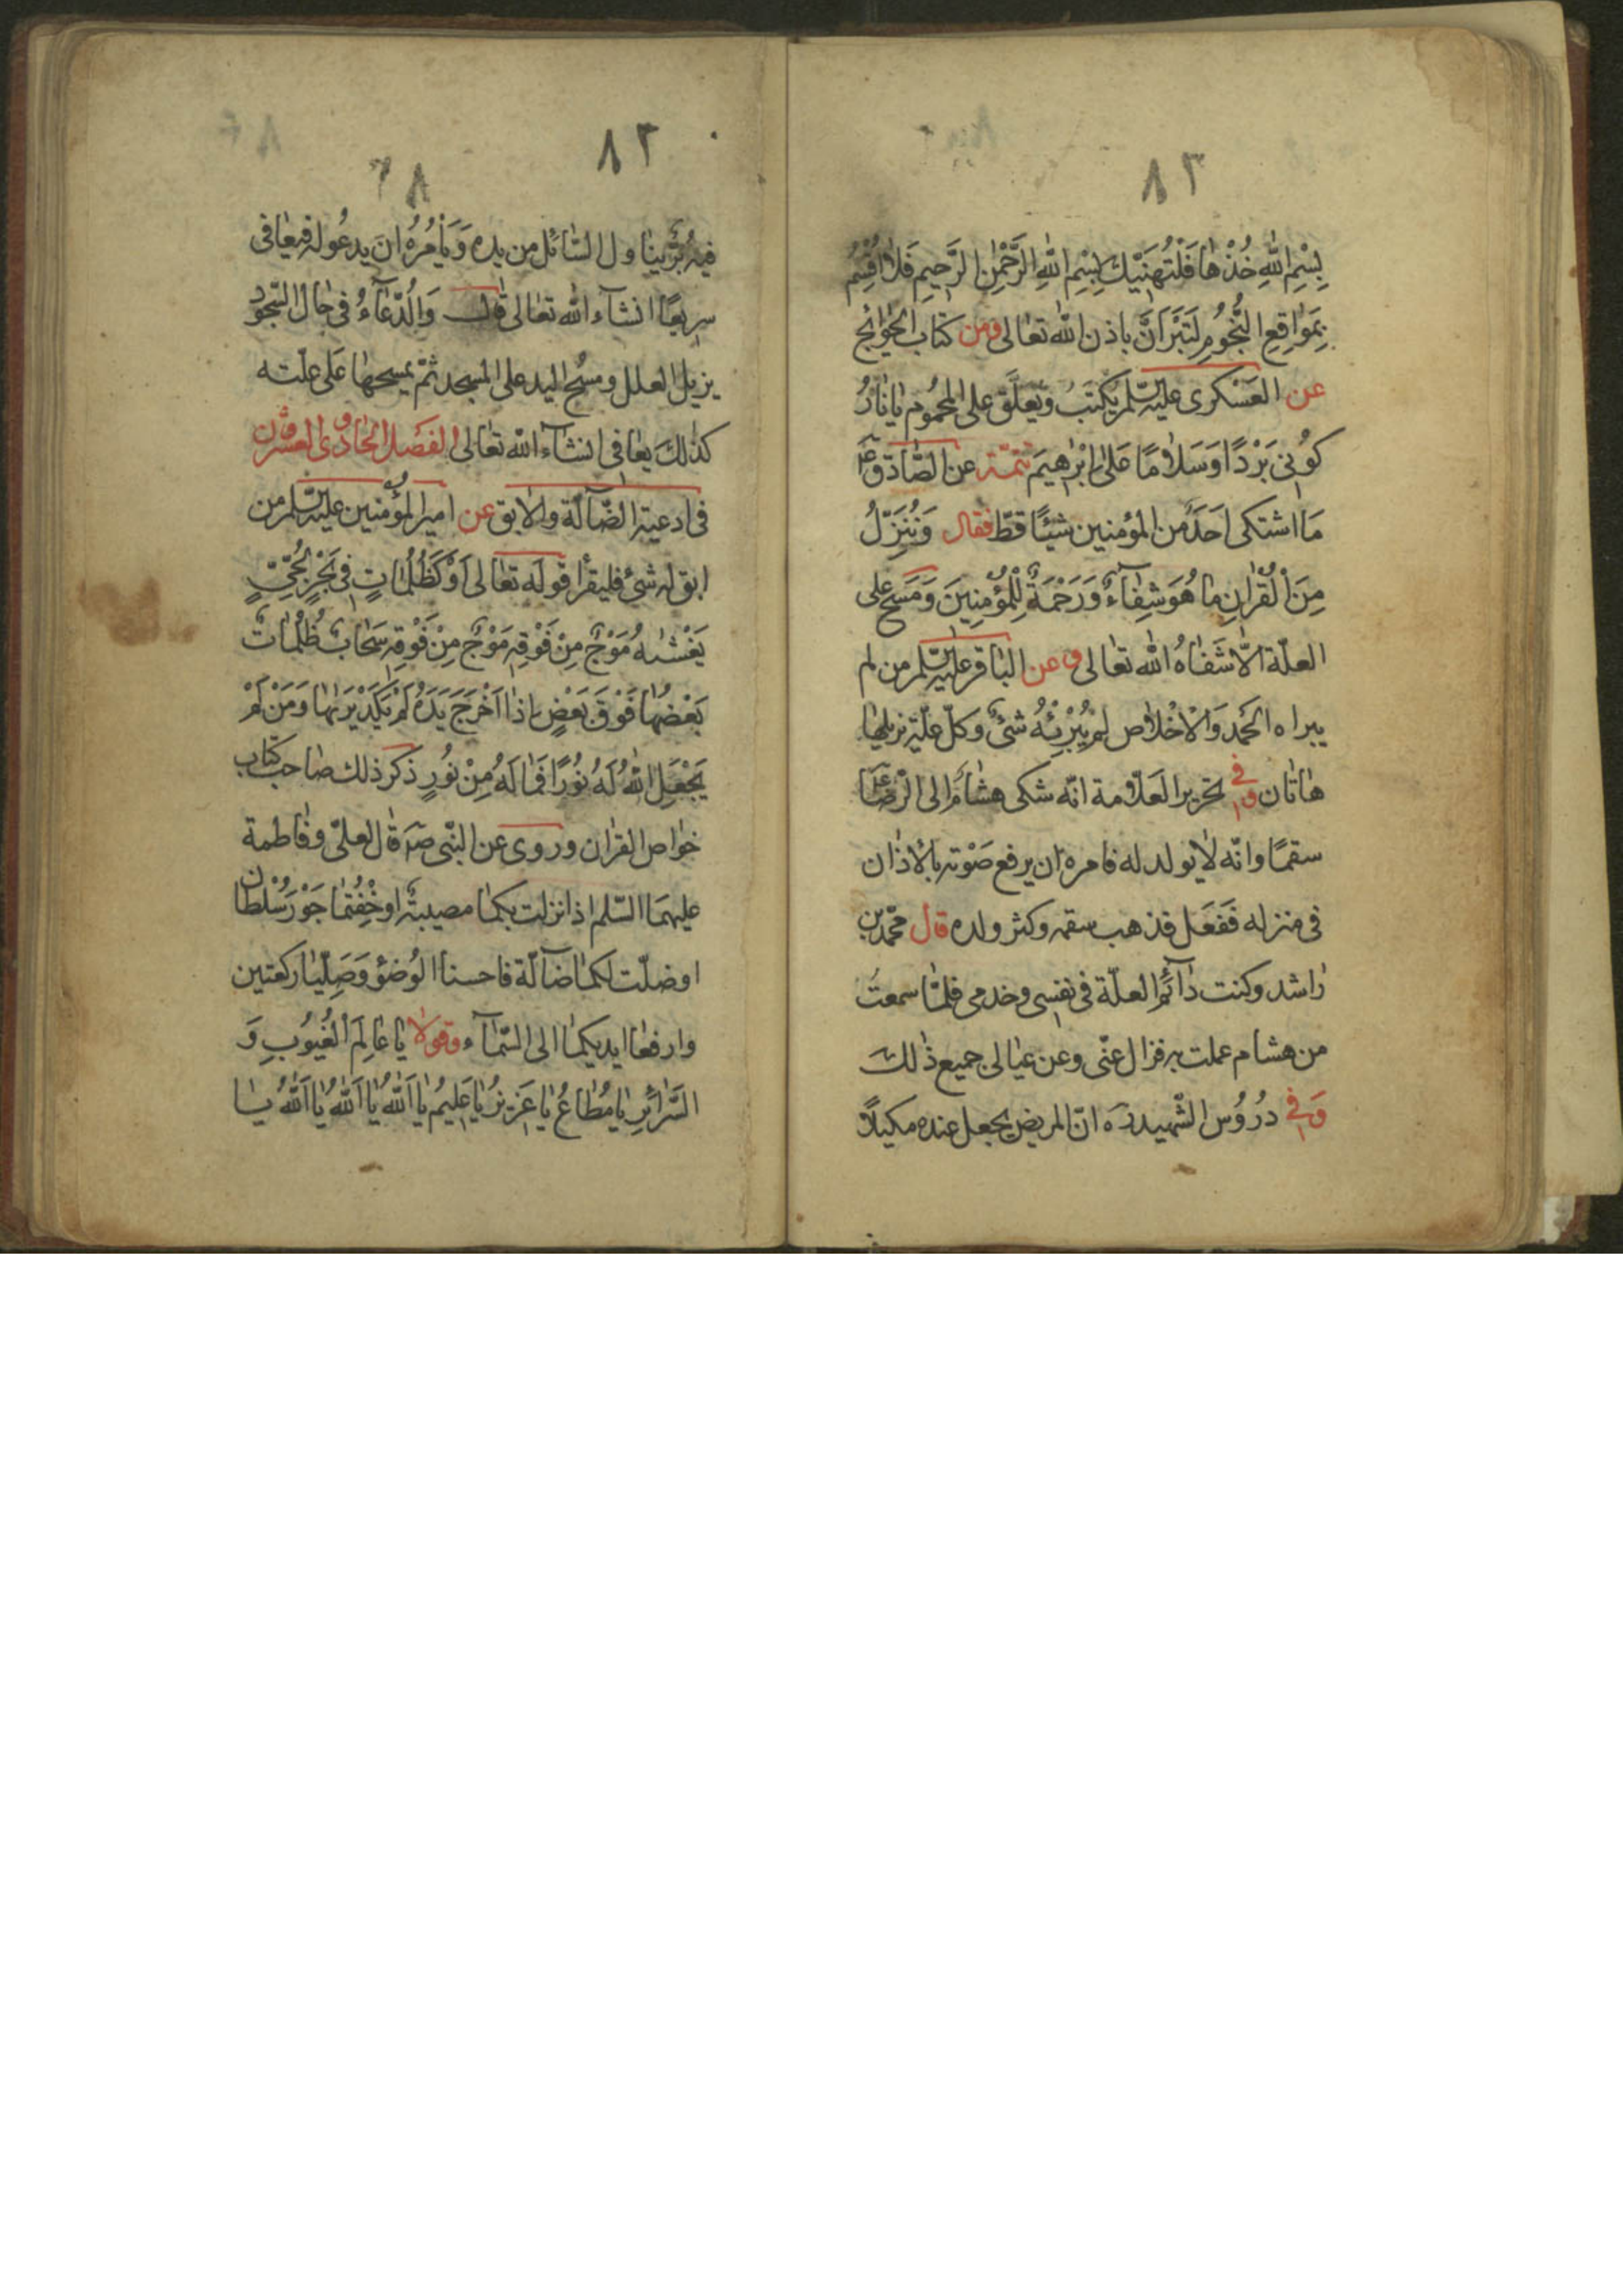 ٨٣
بِسْمِ اللّٰهِ خُذْهَا فَلْتُهَنِّيكَ بِسْمِ اللّٰهِ الرَّحْمٰنِ الرَّحِيمِ فَلَا اُقْسِمُ
بِمَوَاقِعِ النُّجُومِ لَتَبْرَأَنَّ باذن اللّٰه تعالى ومن كتاب الحوائج
عن العَسْكرى عليه السّلم يُكتَبُ ويُعَلَّق على المحمُوم يَا نَارُ
كُونِى بَرْدًا وَسَلَامًا عَلىٰ اِبْرٰهِيمَ تتمّة عن الصّادق ع
مَا اشتكى اَحَدٌ من المؤمنين شيئًا قطّ فقال وَنُنَزِّلُ
مِنَ الْقُرْانِ مَا هُوَ شِفَآءٌ وَرَحْمَةٌ لِلْمُؤْمِنِينَ وَمَسَحَ على
العلّة الّا شَفَاهُ اللّٰه تعالى وعن الباقر عليه السّلم من لم
يبراه الحَمد وَالْاخْلاص لم يُبْرِئْهُ شئٌ وكلّ علّة تزيلها
هاتان وفى تحرير العَلّامة انّه شكى هشامٌ الى الرّضا ع
سقمًا وانّه لا يولد له فامره ان يرفع صَوْته بالاذان
فى منزله فَفَعَل فذهب سقمه وكثر ولده قال محمّد بن
راشد وكنت دآئم العلّة فى نفسى وخدمى فلمّا سمعتُ
من هشام عملت به فزال عنّى وعن عيالى جميع ذٰلك
وَفى دُرُوس الشّهيد ره انّ المريض يجعل عنده مكيلًا
٨٣
فيه بُرٌّ يناول السّائل من يده وَيَأمُرُهُ ان يدعُو له فيعافى
سريعًا انشآء اللّٰه تعالى قال وَالدّعَآءُ فى حال السّجود
يزيل العلل ومسح اليد على المسجد ثمّ يمسحها عَلى علّته
كذٰلك يعافى انشآء اللّٰه تعالى الفَصْل الحادى والعشرون
فى ادعية الضّآلّة والابق عن امير المؤمنين عليه السّلم من
ابق له شئ فليقرأ قوله تعالى اَوْ كَظُلُمَاتٍ فى بَحْرٍ لُجِّىٍّ
يَغْشٰيهُ مَوْجٌ مِنْ فَوْقِهِ مَوْجٌ مِنْ فَوْقِهِ سَحَابٌ ظُلُمَاتٌ
بَعْضُهَا فَوْقَ بَعْضٍ اِذَا اَخْرَجَ يَدَهُ لَمْ يَكَدْ يَرٰيهَا وَمَنْ لَمْ
يَجْعَلِ اللّٰهُ لَهُ نُورًا فَمَا لَهُ مِنْ نُورٍ ذكر ذلك صاحب كتاب
خواص القرٰان وروى عن النّبى صه قال لعلىّ وفاطمة
عليهمَا السّلم اذا نزلت بكما مصيبة او خِفْتُما جَوْرَ سُلْطان
او ضلّت لكما ضآلّة فاحسنا الوُضؤ وَصَلِّيا ركعتين
وارفعا ايديكما الى السّمآء وقولا يَا عَالِمَ الْغُيُوبِ وَ
السَّرَائِرِ يا مُطَاعُ يا عَزِيزُ يا عَلِيمُ يا اَللّٰهُ يا اَللّٰهُ يا اَللّٰهُ يا